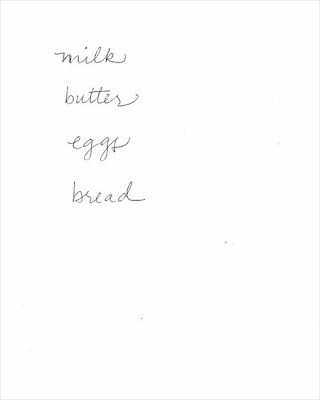 milk
butter
eggs
bread